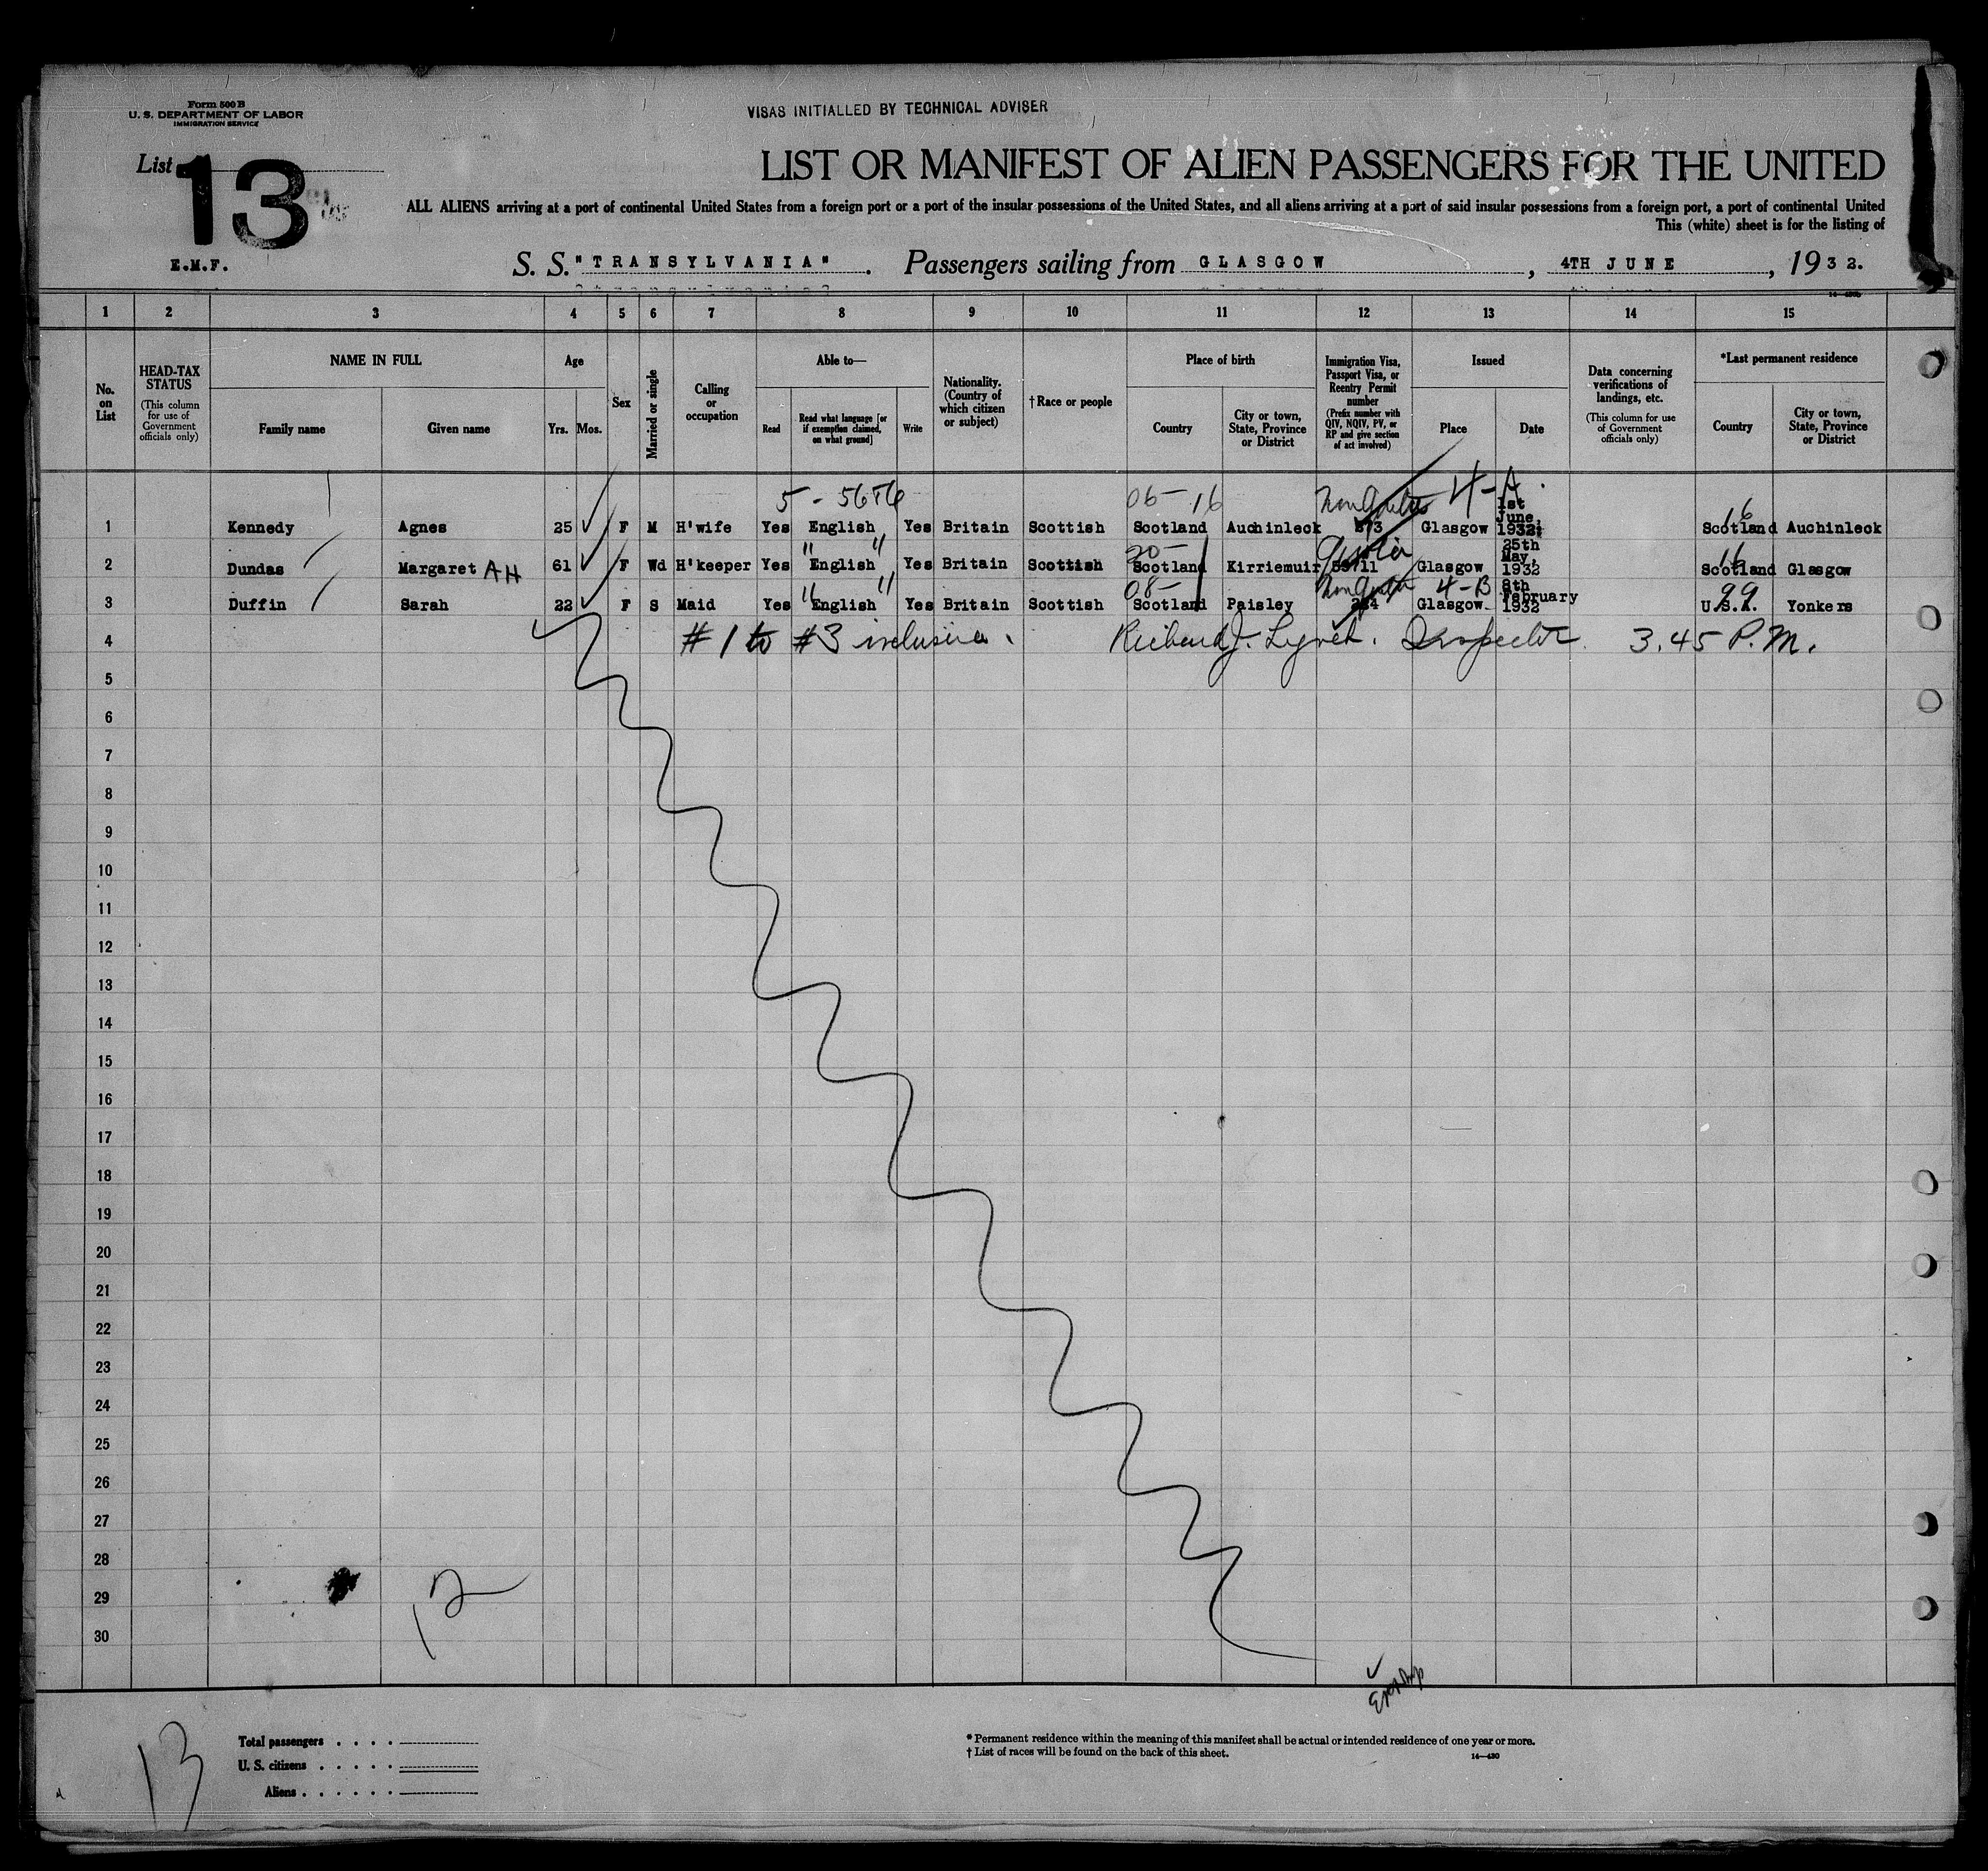 Form 500 B
U. S. DEPARTMENT OF LABOR
IMMIGRATION SERVICE
VISAS INITIALLED BY TECHNICAL ADVISER
List 13
LIST OR MANIFEST OF ALIEN PASSENGERS FOR THE UNITED
ALL ALIENS arriving at a port of continental United States from a foreign port or a port of the insular possessions of the United States, and all aliens arriving at a port of said insular possessions from a foreign port, a port of continental United
This (white) sheet is for the listing of
E.M.F.
S. S. "TRANSYLVANIA". Passengers sailing from GLASGOW, 4TH JUNE, 1932.
1 2 3 4 5 6 7 8 9 10 11 12 13 14 15
No. on List
HEAD-TAX STATUS (This column for use of Government officials only)
NAME IN FULL
Family name Given name
Age
Yrs. Mos.
Sex
Married or single
Calling or occupation
Able to—
Read Read what language [or if exemption claimed, on what ground] Write
Nationality. (Country of which citizen or subject)
†Race or people
Place of birth
Country City or town, State, Province or District
Immigration Visa, Passport Visa, or Reentry Permit number (Prefix number with QIV, NQIV, PV, or RP and give section of act involved)
Issued
Place Date
Data concerning verifications of landings, etc. (This column for use of Government officials only)
*Last permanent residence
Country City or town, State, Province or District
5 - 5676 06-16 4-A. 16
1 Kennedy Agnes 25 F M H'wife Yes English Yes Britain Scottish Scotland Auchinleck Glasgow 1st June, 1932 Scotland Auchinleck
20- 16
2 Dundas Margaret AH 61 F Wd H'keeper Yes English Yes Britain Scottish Scotland Kirriemuir Glasgow 25th May, 1932 Scotland Glasgow
08- 4-B 99
3 Duffin Sarah 22 F S Maid Yes English Yes Britain Scottish Scotland Paisley Glasgow 8th February 1932 U.S.A. Yonkers
4 #1 to #3 inclusive. Richard J. Lynch. Inspector 3.45 P.M.
5
6
7
8
9
10
11
12
13
14
15
16
17
18
19
20
21
22
23
24
25
26
27
28
29
30
13
Total passengers
U. S. citizens
Aliens
* Permanent residence within the meaning of this manifest shall be actual or intended residence of one year or more.
† List of races will be found on the back of this sheet.
14—430